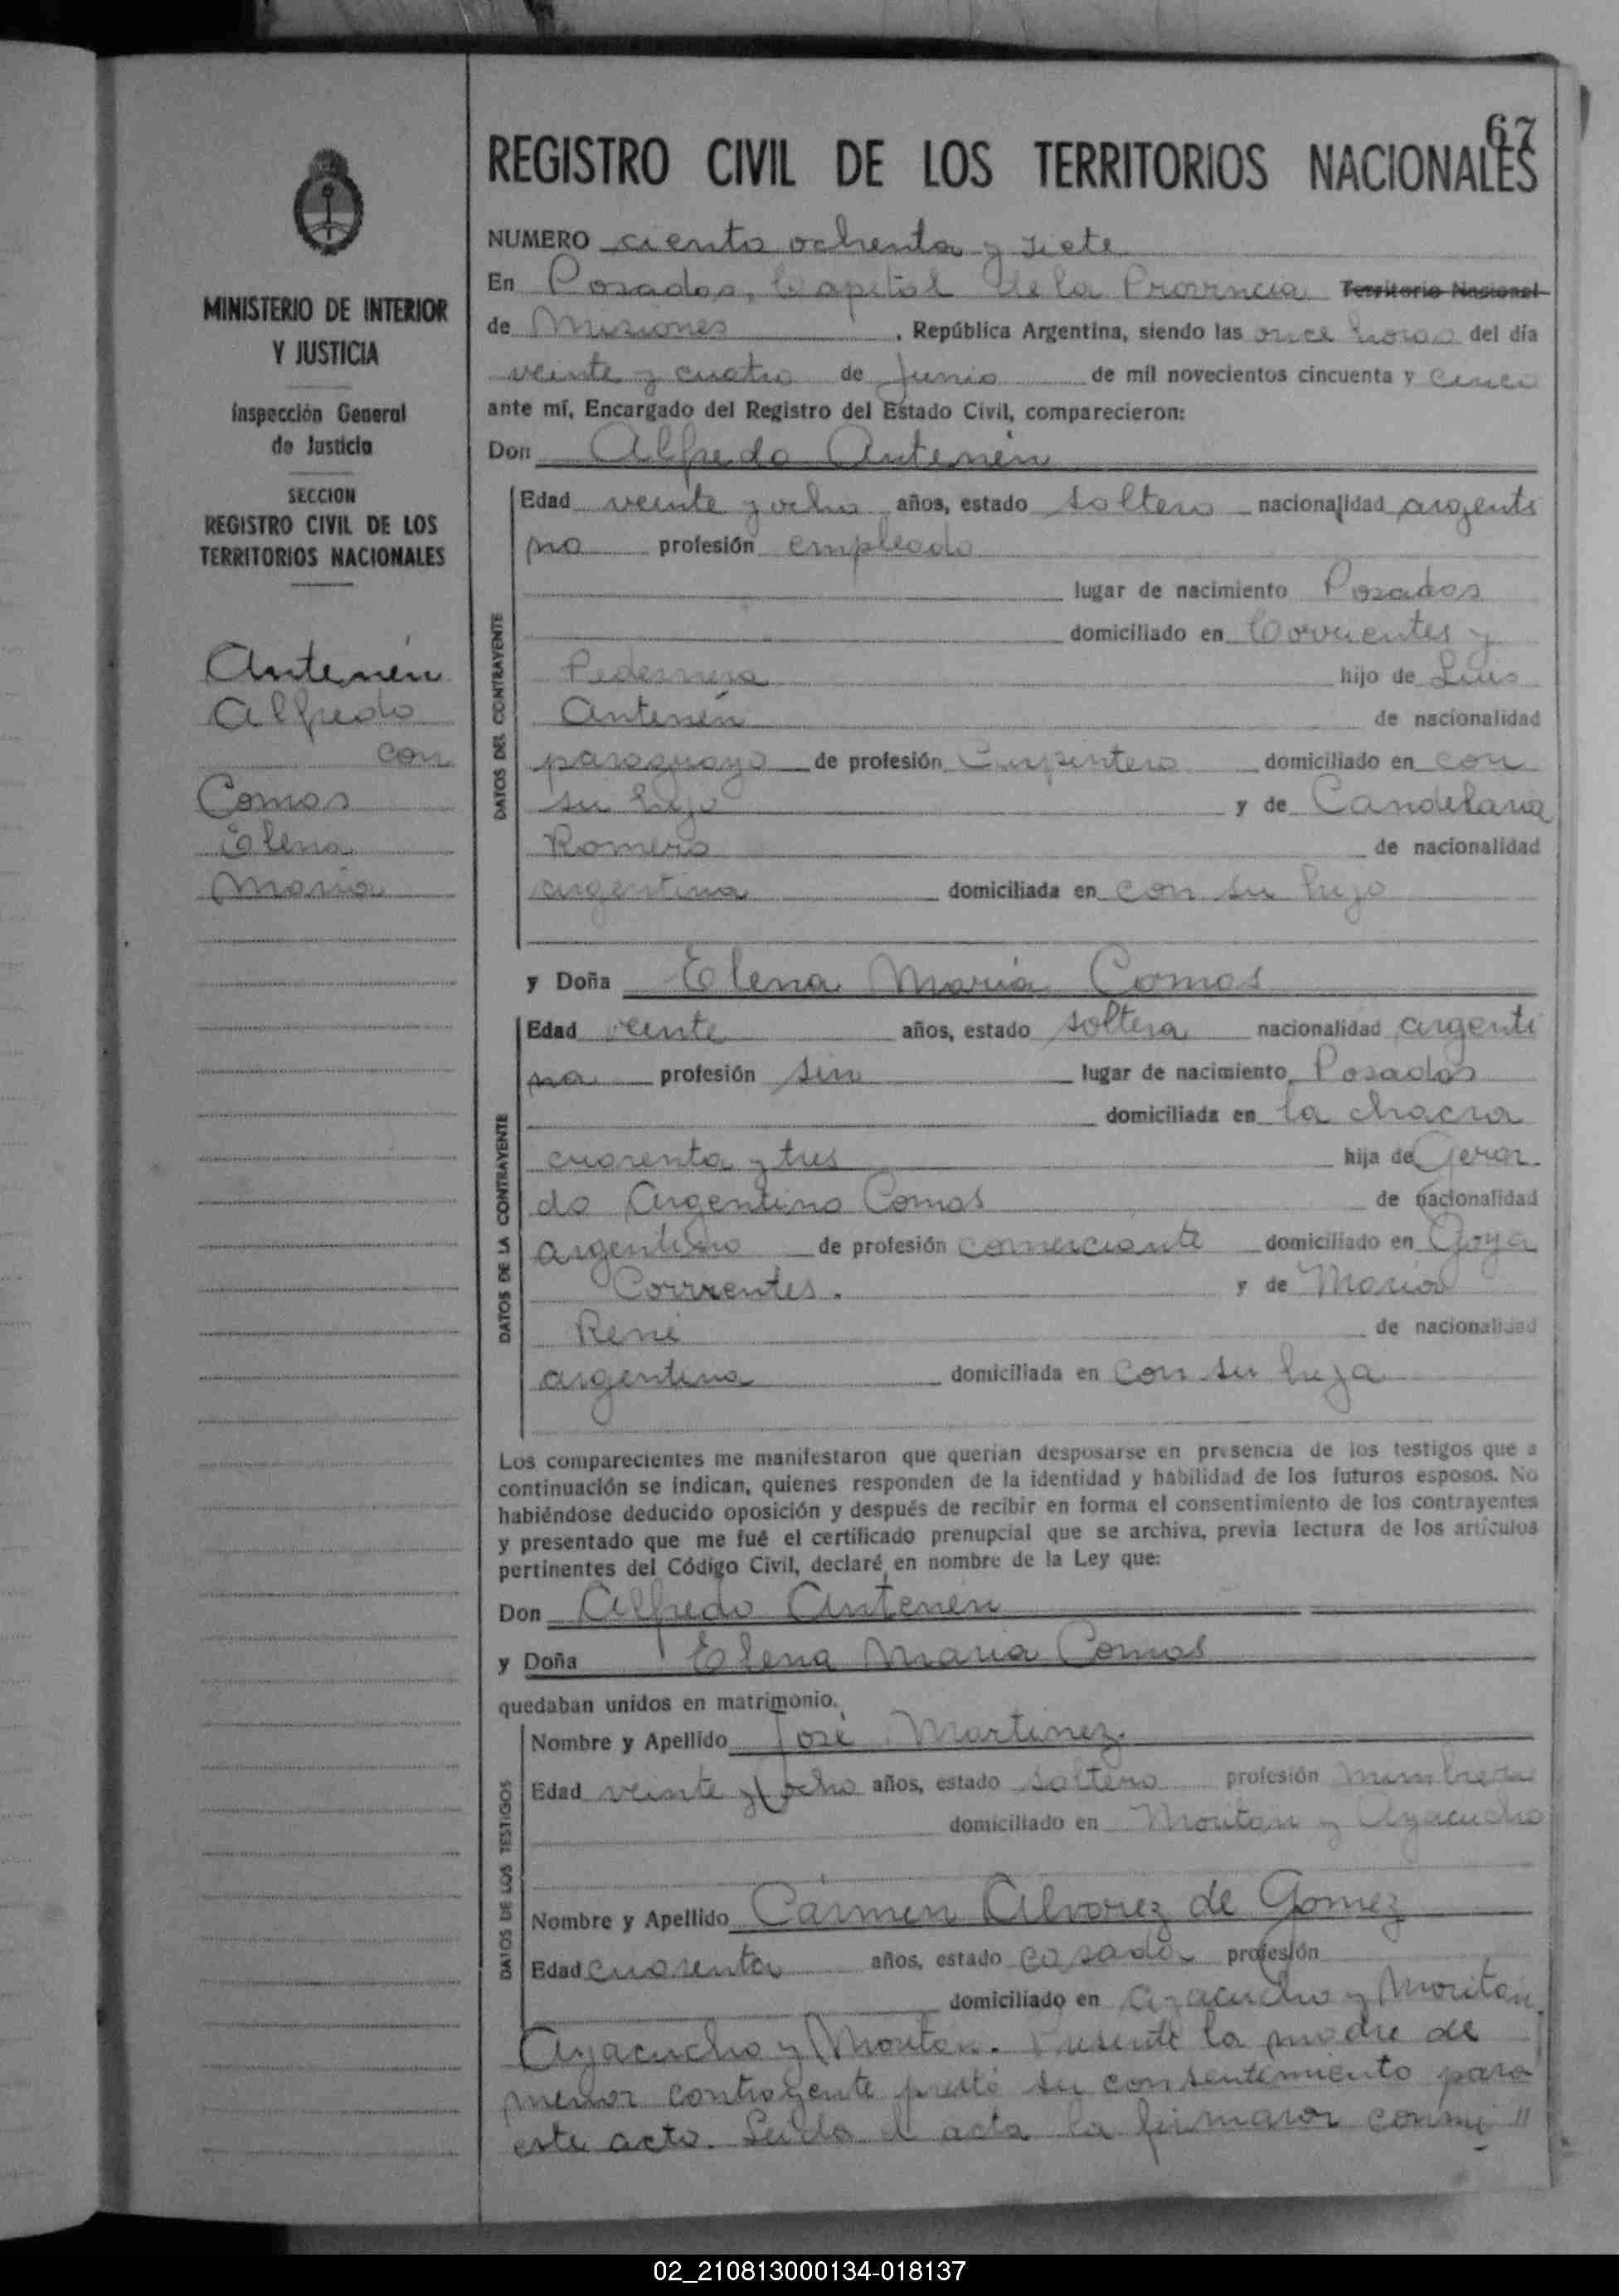 67
REGISTRO CIVIL DE LOS TERRITORIOS NACIONALES
MINISTERIO DE INTERIOR
Y JUSTICIA
Inspección General
de Justicia
SECCION
REGISTRO CIVIL DE LOS
TERRITORIOS NACIONALES
Antenén
Alfredo
con
Comas
Elena
María
NUMERO ciento ochenta y siete
En Posadas, Capital de la Provincia Territorio Nacional
de Misiones, República Argentina, siendo las once horas del día
veinte y cuatro de Junio de mil novecientos cincuenta y cinco
ante mí, Encargado del Registro del Estado Civil, comparecieron:
Don Alfredo Antenén
DATOS DEL CONTRAYENTE
Edad veinte y ocho años, estado soltero nacionalidad argenti
no profesión empleado
lugar de nacimiento Posadas
domiciliado en Corrientes y
Pedernera hijo de Luis
Antenén de nacionalidad
paraguayo de profesión Carpintero domiciliado en con
su hijo y de Candelaria
Romero de nacionalidad
argentina domiciliada en con su hijo
y Doña Elena María Comas
DATOS DE LA CONTRAYENTE
Edad veinte años, estado soltera nacionalidad argenti
na profesión sin lugar de nacimiento Posadas
domiciliada en la chacra
cuarenta y tres hija de Gerar
do Argentino Comas de nacionalidad
argentino de profesión comerciante domiciliado en Goya
Corrientes. y de María
René de nacionalidad
argentina domiciliada en con su hija
Los comparecientes me manifestaron que querían desposarse en presencia de los testigos que a
continuación se indican, quienes responden de la identidad y habilidad de los futuros esposos. No
habiéndose deducido oposición y después de recibir en forma el consentimiento de los contrayentes
y presentado que me fué el certificado prenupcial que se archiva, previa lectura de los artículos
pertinentes del Código Civil, declaré en nombre de la Ley que:
Don Alfredo Antenén
y Doña Elena María Comas
quedaban unidos en matrimonio.
DATOS DE LOS TESTIGOS
Nombre y Apellido José Martinez.
Edad veinte y ocho años, estado soltero profesión mimbrero
domiciliado en Moritán y Ayacucho
Nombre y Apellido Cármen Alvarez de Gomez
Edad cuarenta años, estado casada profesión
domiciliado en Ayacucho y Moritán.
Ayacucho y Moritan. Presente la madre de
menor contrayente prestó su consentimiento para
este acto. Leída el acta la firmaron conmi"
02_210813000134-018137